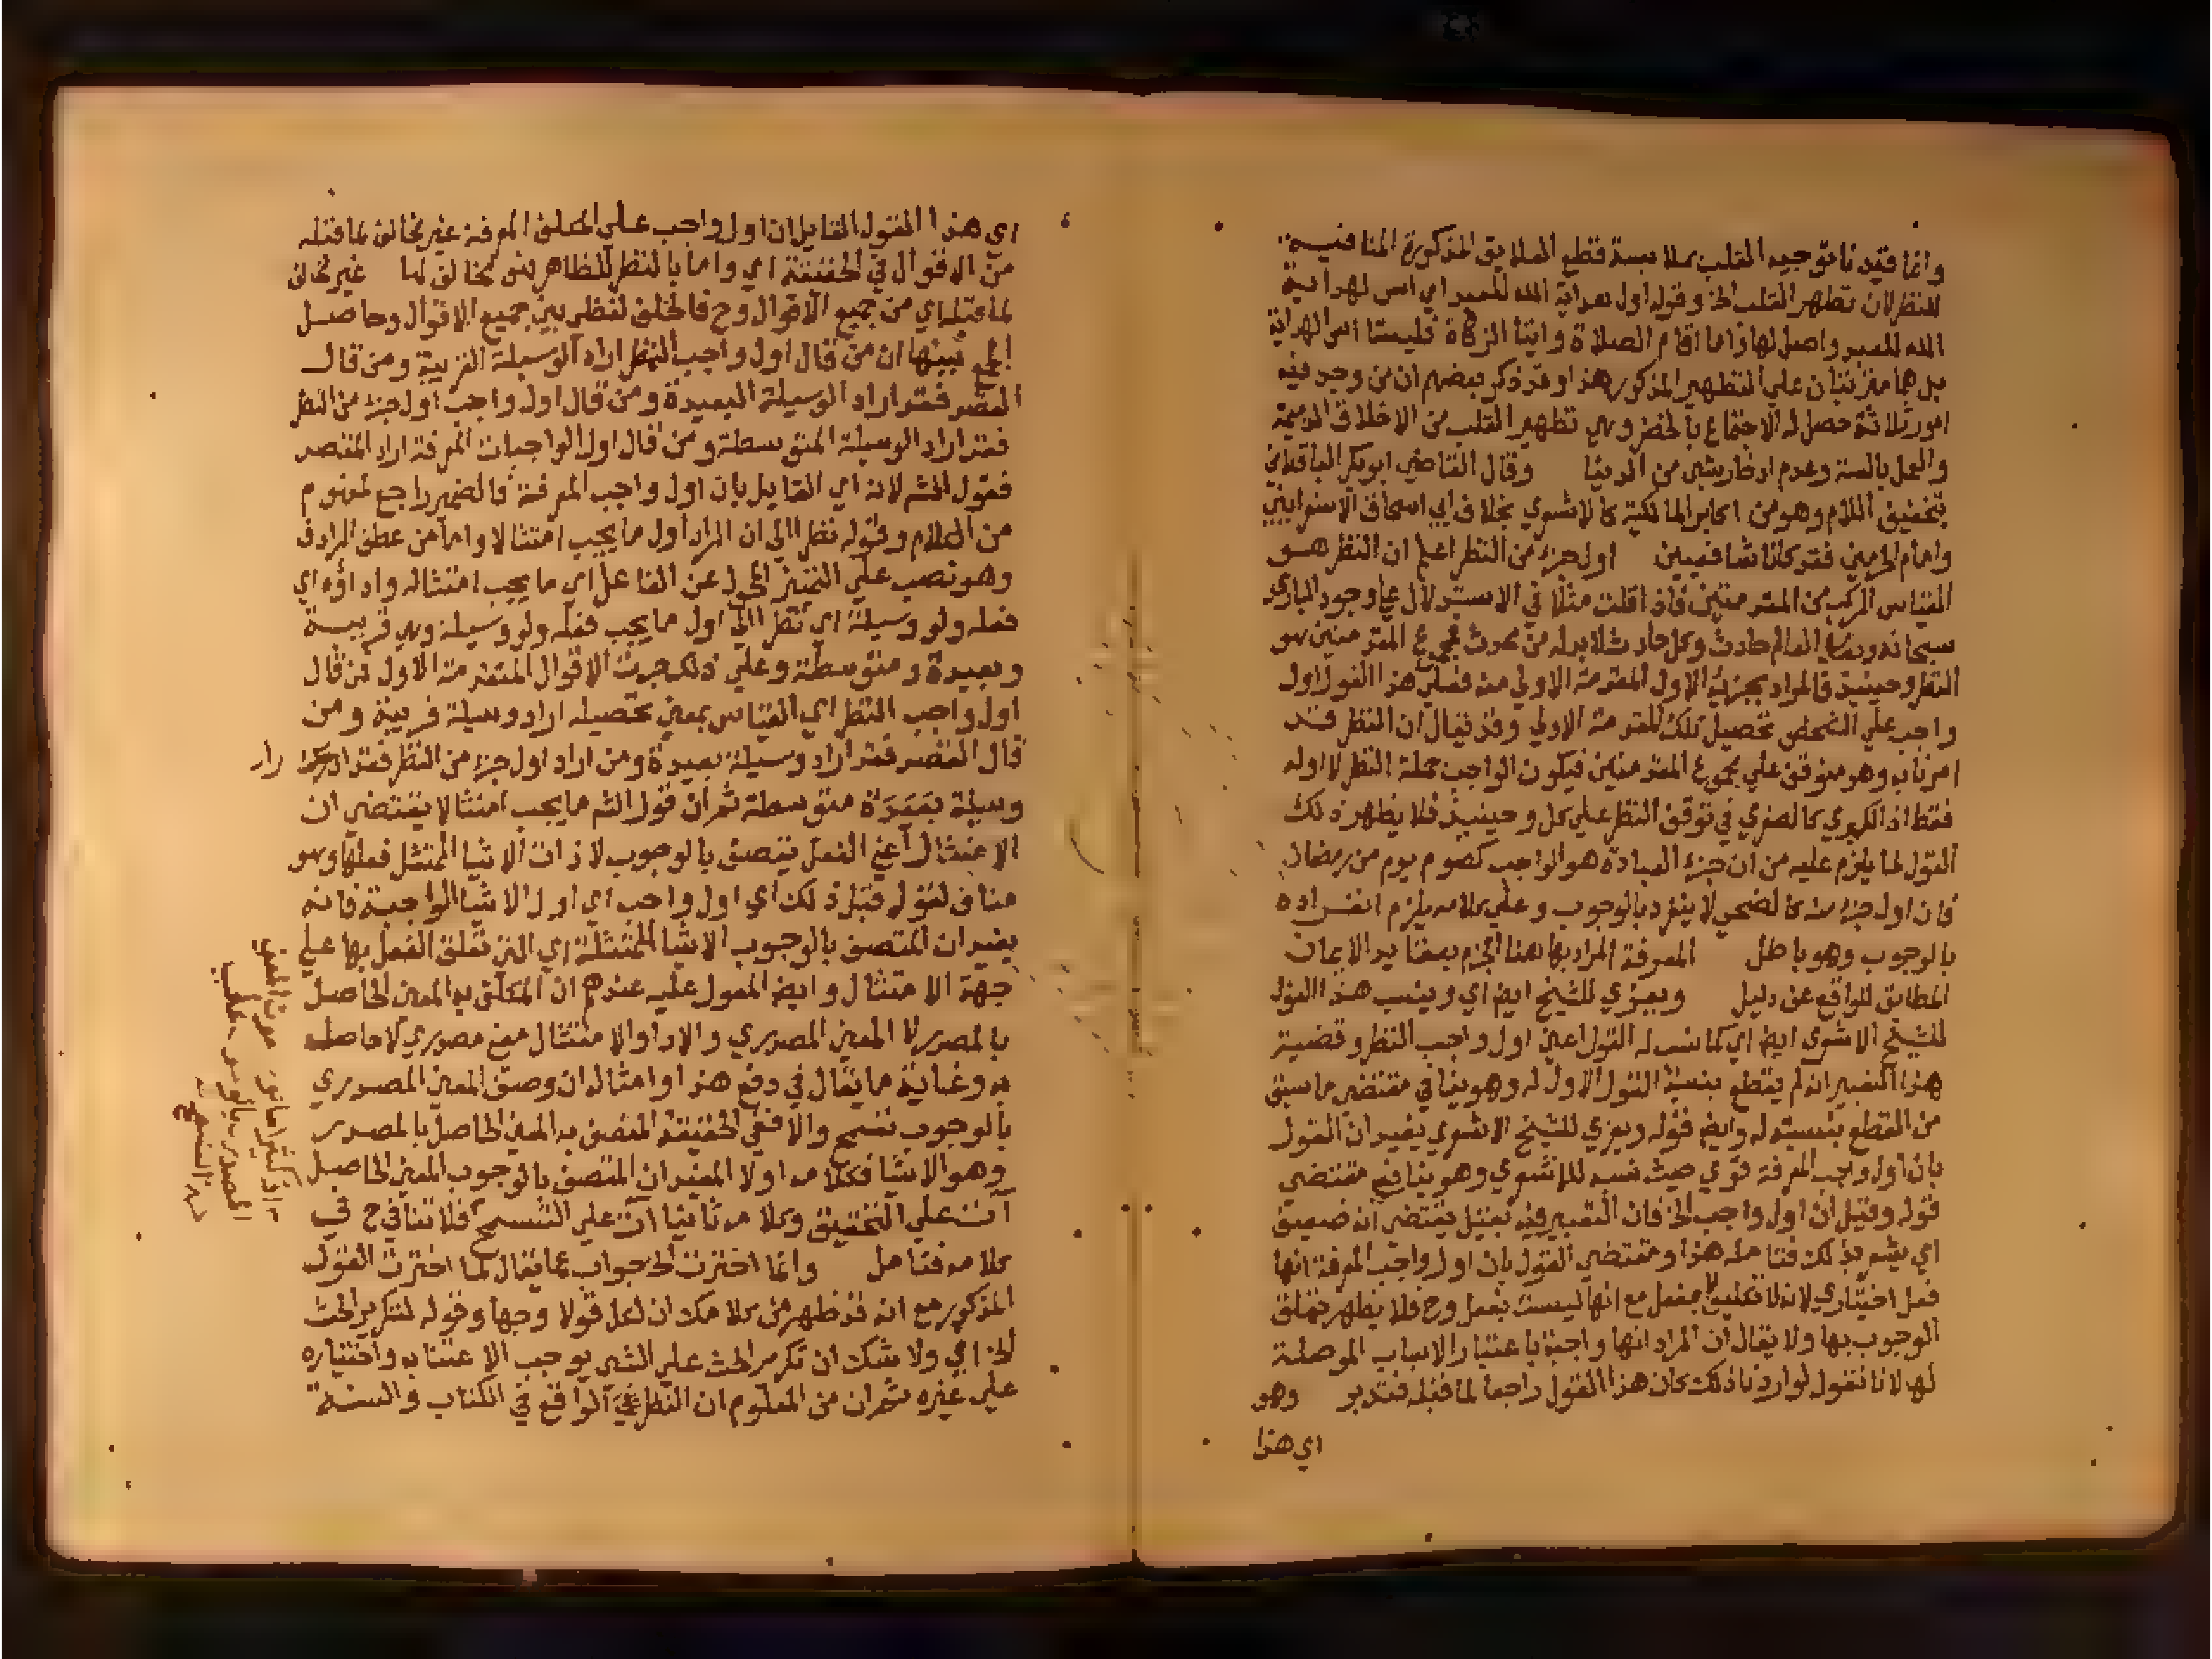 وانما قيدنا توجيه القلب بملابسة قطع العلايق المذكورة المنافية
للنظر لان تطهر القلب الخ وقوله اول هداية الله للعبد اي اس لهداية
الله للعبد واصل لها واما اقام الصلاة وايتا الزكاة فليستا اس الهداية
بل هما مترتبان علي التطهير المذكور هذا وقد ذكر بعضهم ان من وجد فيه
امور ثلاثة حصل له الاجتماع بالخضر وهي تطهير القلب من الاخلاق الذميمة
والعمل بالسنة وعدم ادخار شي من الدنيا وقال القاضي ابوبكر الباقلاني
بتخفيف اللام وهو من اكابر المالكية كالاشعري بخلاف ابي اسحاق الاسفرايني
وامام الحرمين فقد كانا شافعيين اول جزء من النظر اعلم ان النظر هو
القياس المركب من المقدمتين فاذا قلت مثلا في الاستدلال علي وجود الباري
سبحانه وتعالي العالم حادث وكل حادث لا بد له من محدث فمجموع المقدمتين هو
النظر وحينيذ فالمراد بجزئه الاول المقدمة الاولي منه فعلي هذا القول اول
واجب علي الشخص تحصيل تلك المقدمة الاولي وقد يقال ان النظر قد
امرنا به وهو متوقف علي مجموع المقدمتين فيكون الواجب جملة النظر لا اوله
فقط اذ الكبري كالصغري في توقف النظر علي كل وحينيذ فلا يظهر ذلك
القول لما يلزم عليه من ان جزء العبادة هو الواجب كصوم يوم من رمضان
فان اول جزء منه كالضحي لا ينفرد بالوجوب وعلي كلامه يلزم انفراده
بالوجوب وهو باطل المعرفة المراد بها هنا الجزم بعقايد الايمان
المطابق للواقع عن دليل ويعزي للشيخ ايضا اي وينسب هذا القول
للشيخ الاشعري ايضا اي كما نسب له القول اعني اول واجب النظر وقضية
هذا التعبير انه لم يقطع بنسبة القول الاول له وهو ينافي مقتضي ما سبق
من القطع بنسبته له وايضا قوله ويعزي للشيخ الاشعري يفيد ان القول
بان اول واجب المعرفة قوي حيث نسبه للاشعري وهو ينافيه مقتضي
قوله وقيل ان اول واجب الخ فان التعبير فيه بقيل يقتضي انه ضعيف
اي يشعر بذلك فتامله هذا ومقتضي القول بان اول واجب المعرفة انها
فعل اختياري لانه لا تكليف الا بفعل مع انها ليست بفعل وح فلا يظهر تعلق
الوجوب بها ولا يقال ان المراد انها واجبة باعتبار الاسباب الموصلة
لها لانا نقول لو اردنا ذلك كان هذا القول راجعا لما قبله فتدبر وهو
اي هذا
اي هذا القول القايل ان اول واجب علي المكلف المعرفة غير مخالف لما قبله
من الاقوال في الحقيقة اي واما بالنظر للظاهر فهو مخالف لها غير مخالف
لما قبله اي من جميع الاقوال وح فالخلف لفظي بين جميع الاقوال وحاصل
الجمع بينها ان من قال اول واجب النظر اراد الوسيلة القريبة ومن قال
القصد فقد اراد الوسيلة البعيدة ومن قال اول واجب اول جزء من النظر
فقد اراد الوسيلة المتوسطة ومن قال اول الواجبات المعرفة اراد المقصد
فقول الشم لانه اي القايل بان اول واجب المعرفة والضمير راجع لمفهوم
من الكلام وقوله نظر الي ان المراد اول ما يجب امتثالا واما من عطف المرادف
وهو نصب علي التمييز المحول عن الفاعل اي ما يجب امتثاله واداؤه اي
فعله ولو وسيلة اي نظر الي اول ما يجب فعله ولو وسيلة وهي قريبة
وبعيدة ومتوسطة وعلي ذلك جرت الاقوال المتقدمة الاول من قال
اول واجب النظر اي القياس بمعني تحصيله اراد وسيلة قريبة ومن
قال القصد فقد اراد وسيلة بعيدة ومن اراد اول جزء من النظر فقد اراد
وسيلة متوسطة ثم ان قول الشم ما يجب امتثالا يقتضي ان
الامتثال اعني الفعل يتصف بالوجوب لا ذات الاشيا الممتثل فعلها وهو
مناف لقوله قبل ذلك اي اول واجب اي اول الاشيا الواجبة فانه
يفيد ان المتصف بالوجوب الاشيا الممتثلة اي التي تعلق الفعل بها علي
جهة الامتثال وايضا المعول عليه عندهم ان المكلف به المعني الحاصل
بالمصدر لا المعني المصدري والادا والامتثال معني مصدري لا حاصل
به وغاية ما يقال في دفع هذا وامثاله ان وصف المعني المصدري
بالوجوب تسمح والا ففي الحقيقة المتصف به المعني الحاصل بالمصدر
وهو الاشيا فكلامه اولا المفيد ان المتصف بالوجوب المعني الحاصل
آت علي التحقيق وكلامه ثانيا آت علي التسمح فلا تنافي ح في
كلامه فتامل وانما اخترت الخ جواب عما يقال لما اخترت القول
المذكور مع انه قد ظهر من كلامك ان لكل قول وجها وقوله لتكرير الحث
الخ اي ولا شك ان تكرير الحث علي الشي يوجب الاعتنا به واختياره
علي غيره ثم ان من المعلوم ان النظر الواقع في الكتاب والسنة